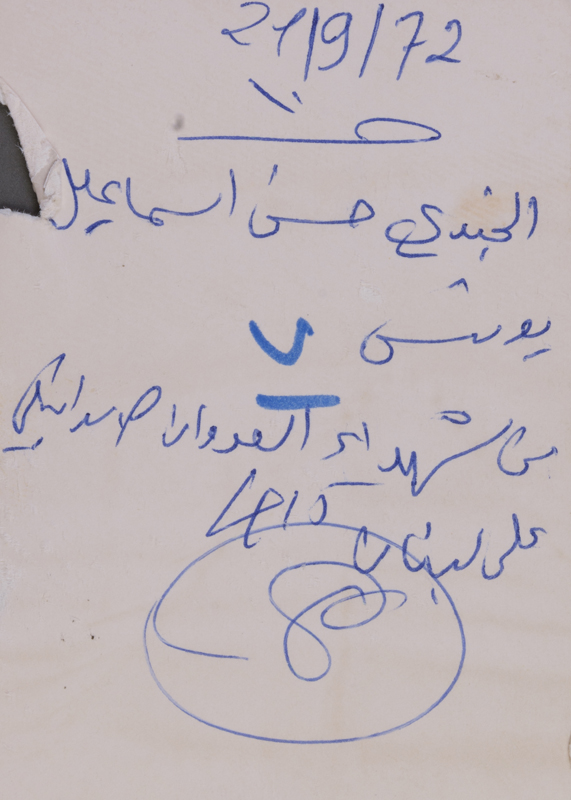 21/9/72
الجندي حسن اسماعيل
يونس
٧
من شهداء العدوان الاسرائيلي
على لبنان